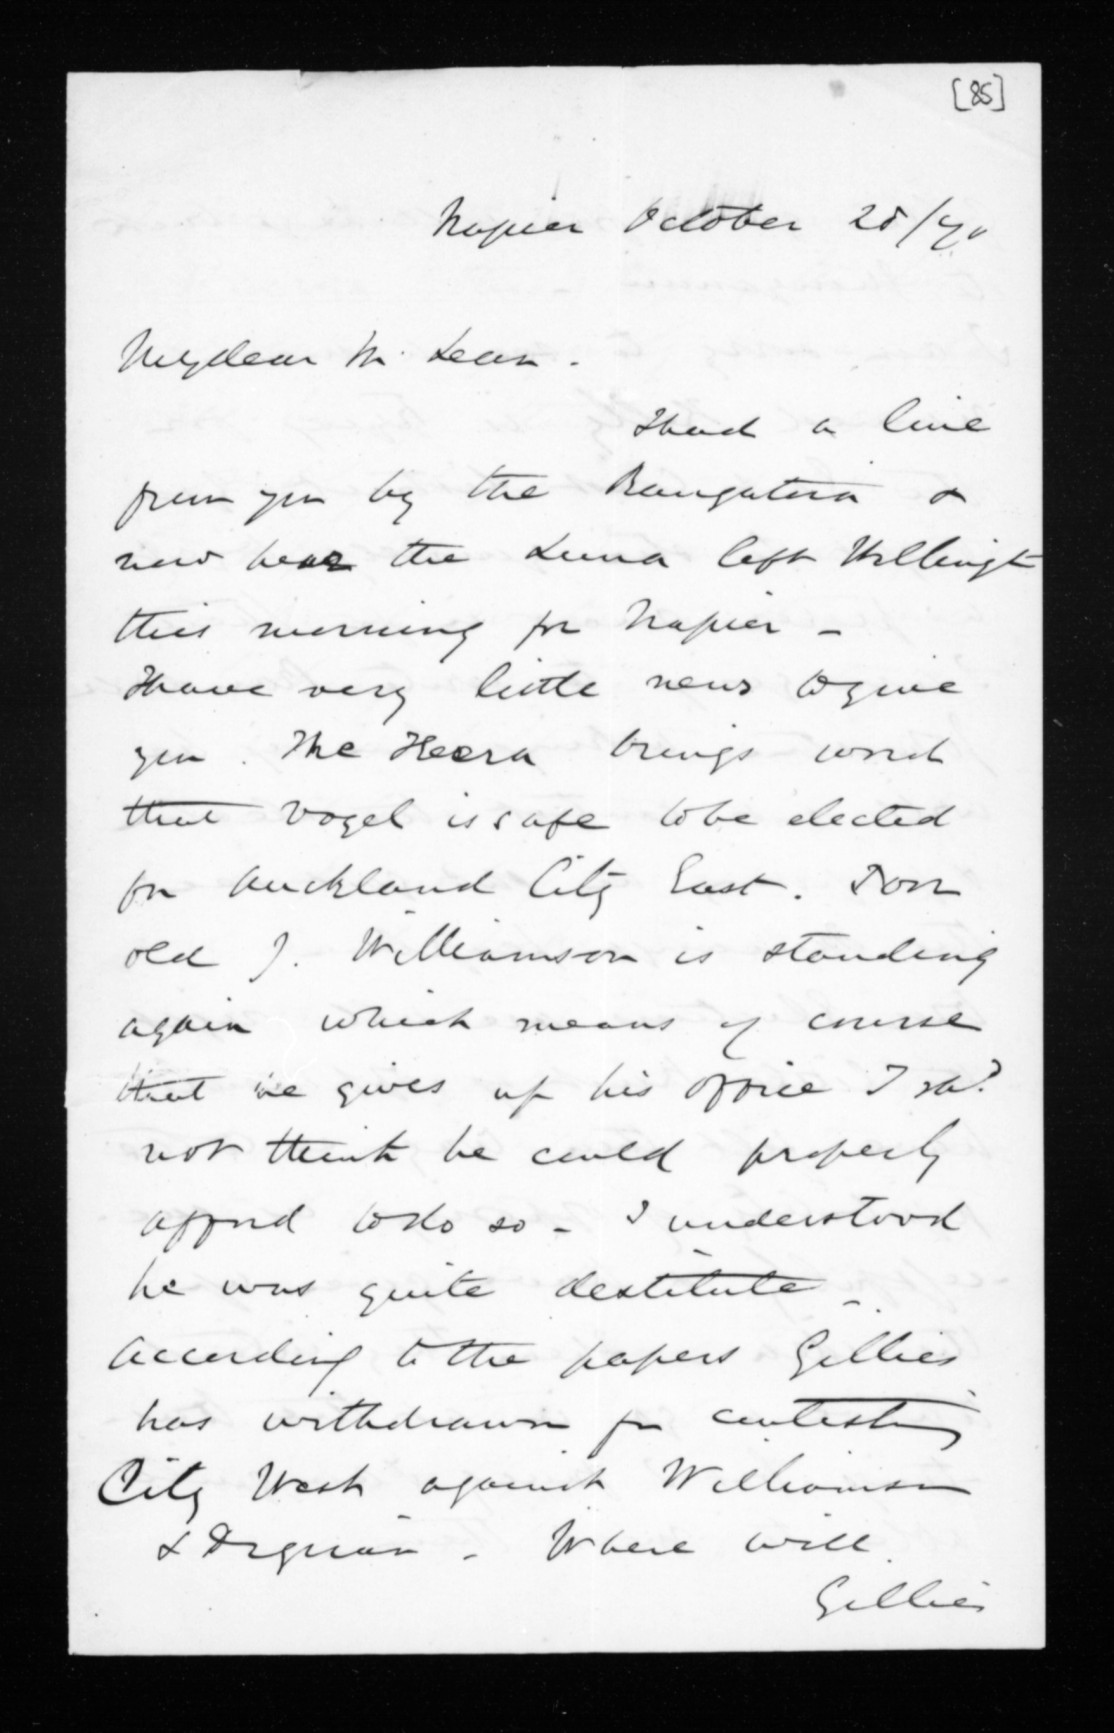 [85]
Napier October 28/70
My dear Mc Lean.
I had a line
from you by the Rangatira &
now hear the Luna left Wellingt
this morning for Napier -
I have very little news to give
you. The Heera brings word
that Vogel is safe to be elected
for Auckland City East.
old J. Williamson is standing
again which means of course
that he gives up his office I shd
not think he could properly
afford to do so - I understood
he was quite destitute -
According to the papers Gillies
has withdrawn for contesting
City West against Williamson
& Dignan - Where will
Gillies